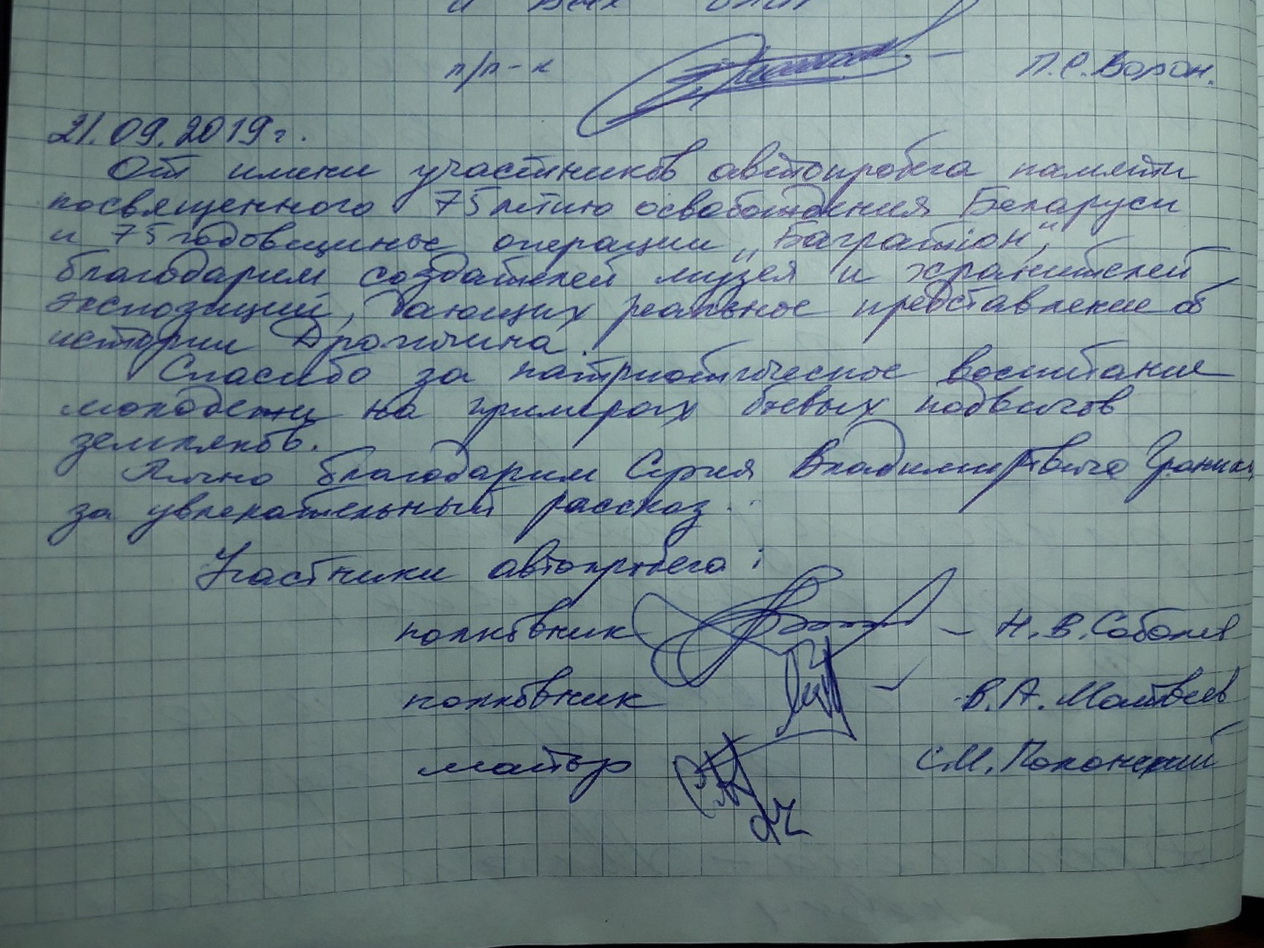 и всех благ
п/п-к П.С. Ворон.
21.09.2019г.
От имени участников автопробега памяти
посвященного 75летию освобождения Беларуси
и 75годовщиные операции „Багратион",
благодарим создателей музея и хранителей
экспозиций, дающих реальное представление об
истории Дрогичина.
Спасибо за патриотическое воспитание
молодежи на примерах боевых подвигов
земляков.
Лично благодарим Сергея Владимировича
за увлекательный рассказ.
Участники автопробега:
полковник – Н.В. Соболев
полковник – В.А. Матвеев
майор С.М. Полонский